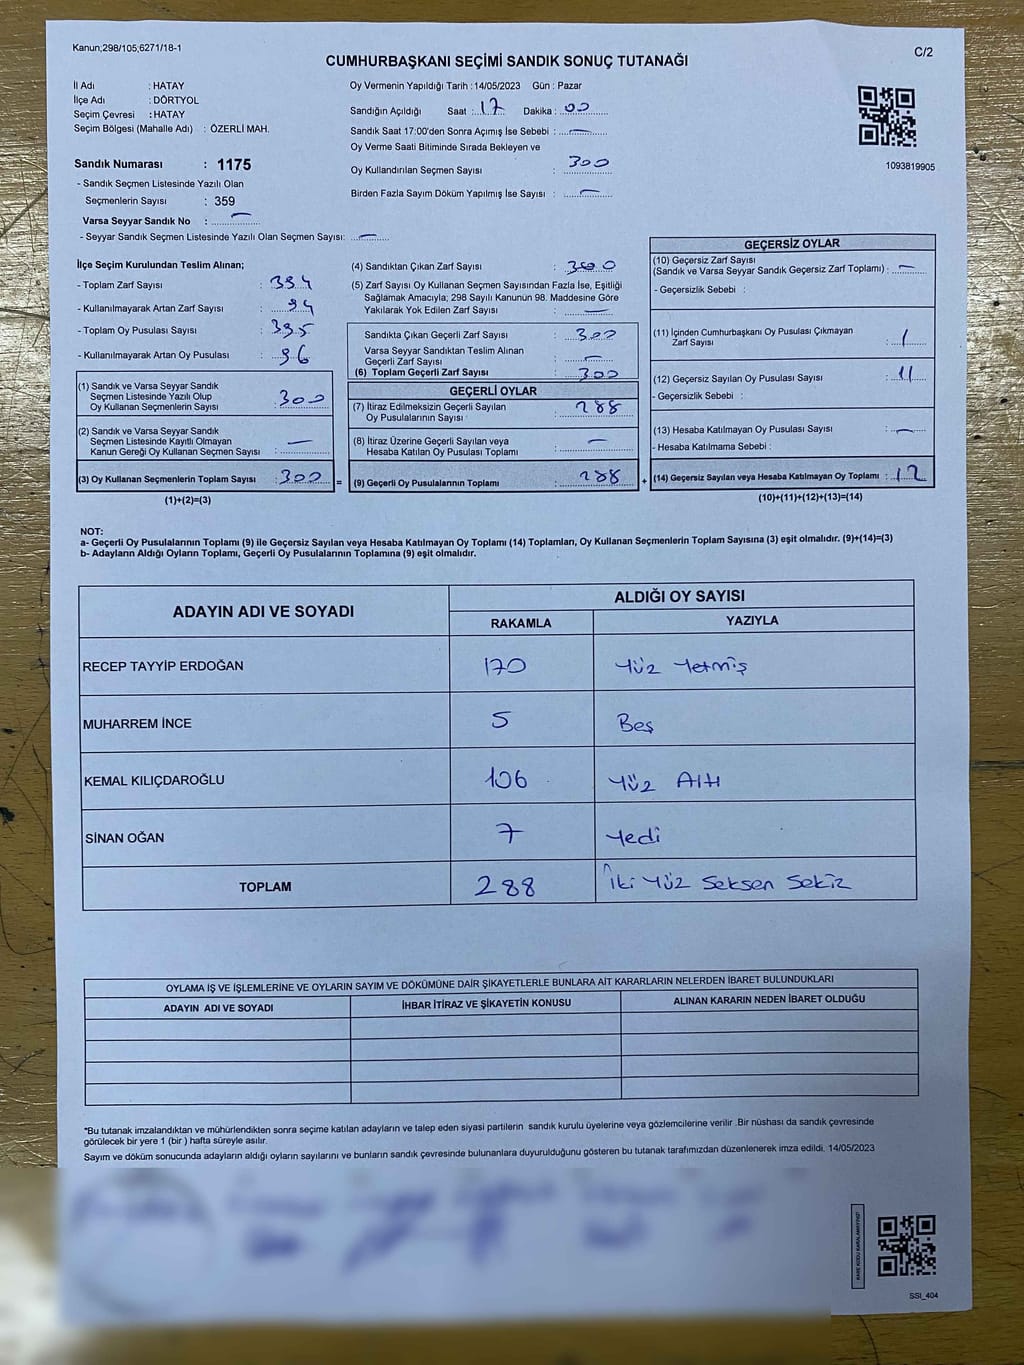 Kanun;298/105;6271/18-1
C/2
CUMHURBAŞKANI SEÇİMİ SANDIK SONUÇ TUTANAĞI
İl Adı : HATAY
İlçe Adı : DÖRTYOL
Seçim Çevresi : HATAY
Seçim Bölgesi (Mahalle Adı) : ÖZERLİ MAH.
Sandık Numarası : 1175
- Sandık Seçmen Listesinde Yazılı Olan
Seçmenlerin Sayısı : 359
Varsa Seyyar Sandık No : —
- Seyyar Sandık Seçmen Listesinde Yazılı Olan Seçmen Sayısı: —
Oy Vermenin Yapıldığı Tarih : 14/05/2023 Gün : Pazar
Sandığın Açıldığı Saat : 17 Dakika : 00
Sandık Saat 17:00'den Sonra Açımış İse Sebebi : —
Oy Verme Saati Bitiminde Sırada Bekleyen ve
Oy Kullandırılan Seçmen Sayısı : 300
Birden Fazla Sayım Döküm Yapılmış İse Sayısı : —
1093819905
İlçe Seçim Kurulundan Teslim Alınan;
- Toplam Zarf Sayısı : 394
- Kullanılmayarak Artan Zarf Sayısı : 94
- Toplam Oy Pusulası Sayısı : 395
- Kullanılmayarak Artan Oy Pusulası : 96
(1) Sandık ve Varsa Seyyar Sandık
Seçmen Listesinde Yazılı Olup
Oy Kullanan Seçmenlerin Sayısı : 300
(2) Sandık ve Varsa Seyyar Sandık
Seçmen Listesinde Kayıtlı Olmayan
Kanun Gereği Oy Kullanan Seçmen Sayısı : —
(3) Oy Kullanan Seçmenlerin Toplam Sayısı : 300 =
(1)+(2)=(3)
(4) Sandıktan Çıkan Zarf Sayısı : 300
(5) Zarf Sayısı Oy Kullanan Seçmen Sayısından Fazla İse, Eşitliği
Sağlamak Amacıyla; 298 Sayılı Kanunün 98. Maddesine Göre
Yakılarak Yok Edilen Zarf Sayısı : —
Sandıkta Çıkan Geçerli Zarf Sayısı : 300
Varsa Seyyar Sandıktan Teslim Alınan
Geçerli Zarf Sayısı : —
(6) Toplam Geçerli Zarf Sayısı : 300
GEÇERLİ OYLAR
(7) İtiraz Edilmeksizin Geçerli Sayılan
Oy Pusulalarının Sayısı : 288
(8) İtiraz Üzerine Geçerli Sayılan veya
Hesaba Katılan Oy Pusulası Toplamı : —
(9) Geçerli Oy Pusulalarının Toplamı : 288 +
GEÇERSİZ OYLAR
(10) Geçersiz Zarf Sayısı
(Sandık ve Varsa Seyyar Sandık Geçersiz Zarf Toplamı) : —
- Geçersizlik Sebebi :
(11) İçinden Cumhurbaşkanı Oy Pusulası Çıkmayan
Zarf Sayısı : 1
(12) Geçersiz Sayılan Oy Pusulası Sayısı : 11
- Geçersizlik Sebebi :
(13) Hesaba Katılmayan Oy Pusulası Sayısı : —
- Hesaba Katılmama Sebebi :
(14) Geçersiz Sayılan veya Hesaba Katılmayan Oy Toplamı : 12
(10)+(11)+(12)+(13)=(14)
NOT:
a- Geçerli Oy Pusulalarının Toplamı (9) ile Geçersiz Sayılan veya Hesaba Katılmayan Oy Toplamı (14) Toplamları, Oy Kullanan Seçmenlerin Toplam Sayısına (3) eşit olmalıdır. (9)+(14)=(3)
b- Adayların Aldığı Oyların Toplamı, Geçerli Oy Pusulalarının Toplamına (9) eşit olmalıdır.
ADAYIN ADI VE SOYADI
ALDIĞI OY SAYISI
RAKAMLA YAZIYLA
RECEP TAYYİP ERDOĞAN 170 Yüz Yetmiş
MUHARREM İNCE 5 Beş
KEMAL KILIÇDAROĞLU 106 Yüz Altı
SİNAN OĞAN 7 Yedi
TOPLAM 288 İki Yüz Seksen Sekiz
OYLAMA İŞ VE İŞLEMLERİNE VE OYLARIN SAYIM VE DÖKÜMÜNE DAİR ŞİKAYETLERLE BUNLARA AİT KARARLARIN NELERDEN İBARET BULUNDUKLARI
ADAYIN ADI VE SOYADI İHBAR İTİRAZ VE ŞİKAYETİN KONUSU ALINAN KARARIN NEDEN İBARET OLDUĞU
*Bu tutanak imzalandıktan ve mühürlendikten sonra seçime katılan adayların ve talep eden siyasi partilerin sandık kurulu üyelerine veya gözlemcilerine verilir .Bir nüshası da sandık çevresinde
görülecek bir yere 1 (bir ) hafta süreyle asılır.
Sayım ve döküm sonucunda adayların aldığı oyların sayılarını ve bunların sandık çevresinde bulunanlara duyurulduğunu gösteren bu tutanak tarafımızdan düzenlenerek imza edildi. 14/05/2023
KARE KODU KARALAMAYINIZ!
SSI_404